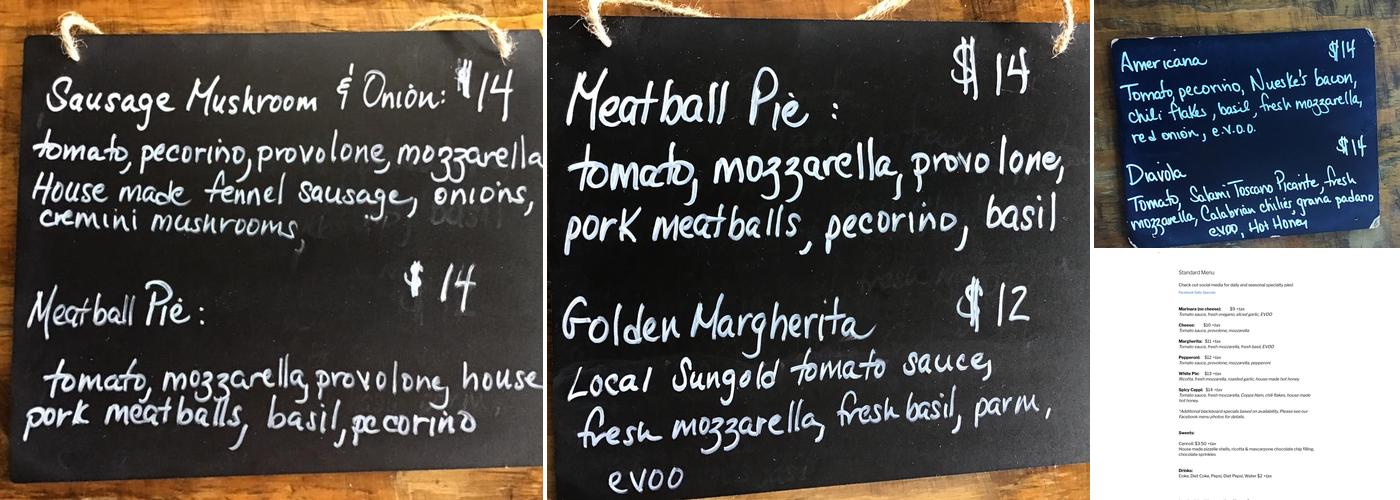 Sausage Mushroom & Onion: $14
tomato, pecorino, provolone, mozzarella
House made fennel sausage, onions,
cremini mushrooms,
$14
Meatball Pie:
tomato, mozzarella, provolone, house
pork meatballs, basil, pecorino
$14
Meatball Pie :
tomato, mozzarella, provolone,
pork meatballs, pecorino, basil
$12
Golden Margherita
Local Sungold tomato sauce,
fresh mozzarella, fresh basil, parm,
evoo
Americana $14
Tomato, pecorino, Nueske's bacon,
chili flakes, basil, fresh mozzarella,
red onion, e.v.o.o.
$14
Diavola
Tomato, Salami Toscano Picante, fresh
mozzarella, Calabrian chilies, grana padano
evoo, Hot Honey
Standard Menu
Check out social media for daily and seasonal specialty pies!
Facebook Daily Specials
Marinara (no cheese): $9 +tax
Tomato sauce, fresh oregano, sliced garlic, EVOO
Cheese: $10 +tax
Tomato sauce, provolone, mozzarella
Margherita: $11 +tax
Tomato sauce, fresh mozzarella, fresh basil, EVOO
Pepperoni: $12 +tax
Tomato sauce, provolone, mozzarella, pepperoni
White Pie: $13 +tax
Ricotta, fresh mozzarella, roasted garlic, house made hot honey
Spicy Coppi: $14 +tax
Tomato sauce, fresh mozzarella, Coppa Ham, chili flakes, house made
hot honey.
*Additional blackboard specials based on availability. Please see our
Facebook menu photos for details.
Sweets:
Cannoli $3.50 +tax
House made pizzelle shells, ricotta & mascarpone chocolate chip filling,
chocolate sprinkles
Drinks:
Coke, Diet Coke, Pepsi, Diet Pepsi, Water $2 +tax